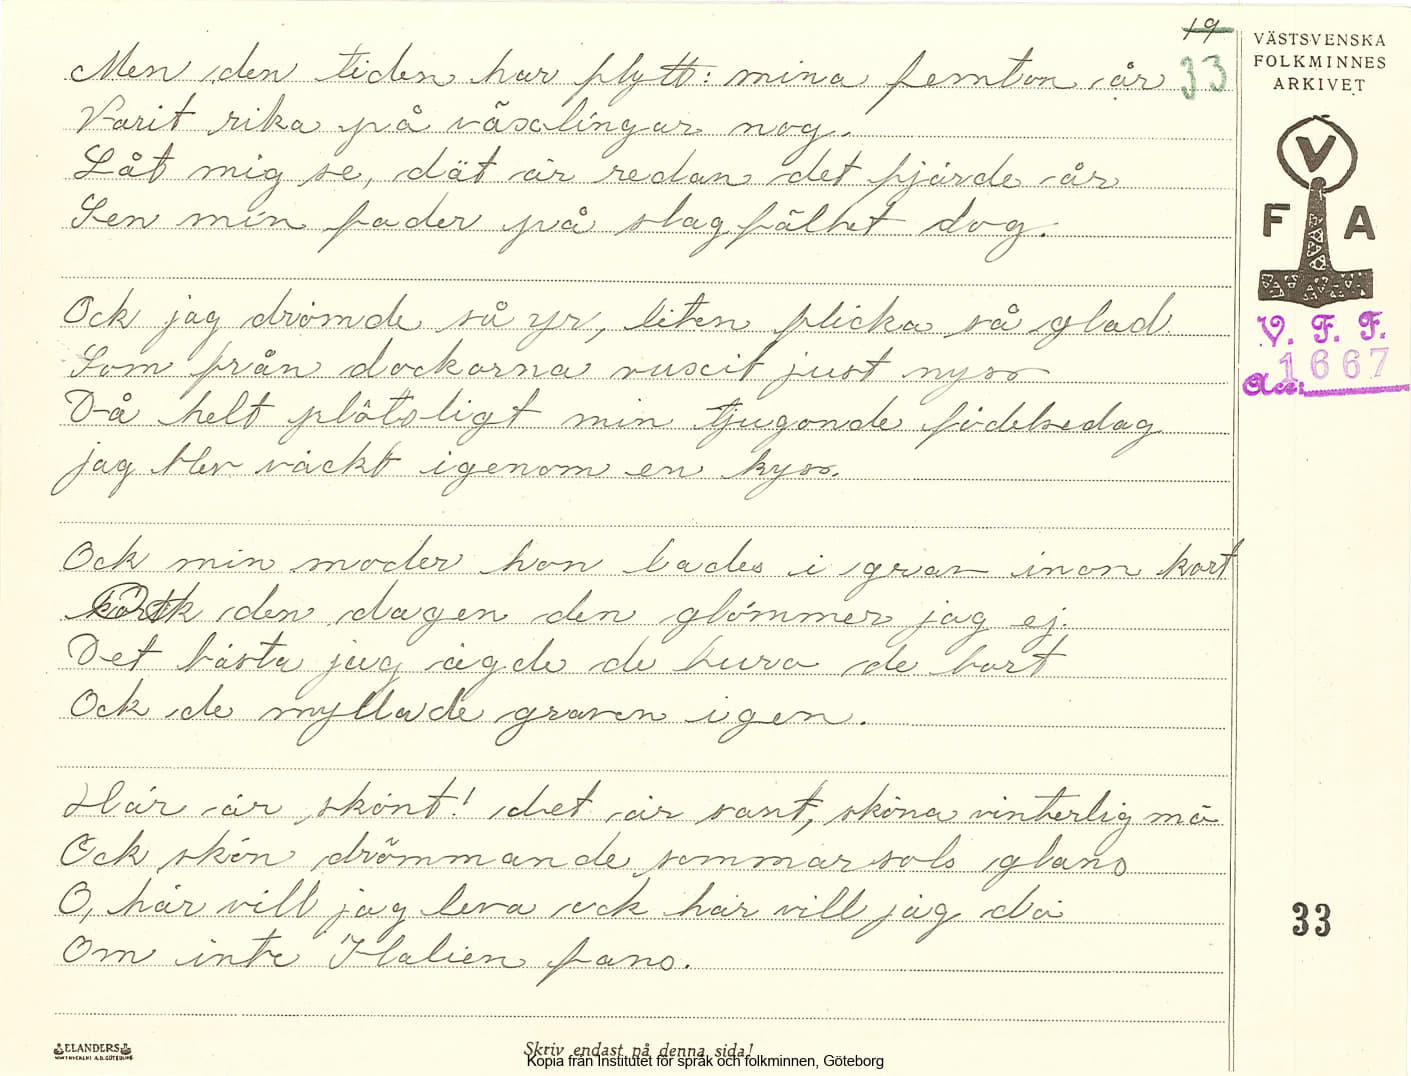 19
33
VÄSTSVENSKA
FOLKMINNES
ARKIVET
V
F A
V. F. F.
1667
Acc:
Men den tiden har flytt: mina femton år
Varit rika på växlingar nog.
Låt mig se, dät är redan det fjärde år
Sen min fader på slagfältet dog.
Ock jag drömde så yr, liten flicka så glad
Som från dockorna vuxit just nyss
Då helt plötsligt min tjugonde födelsedag
jag blev väckt igenom en kyss.
Ock min moder hon lades i grav inom kort
Ock den dagen den glömmer jag ej.
Det bästa jag ägde de buro de bort
Ock de myllade graven igen.
Här är skönt! det är sant, sköna vinterlig mö
Ock skön drömmande sommarsols glans
O, här vill jag leva ock här vill jag dö
Om inte Italien fans.
33
ELANDERS
Skriv endast på denna sida!
Kopia från Institutet för språk och folkminnen, Göteborg